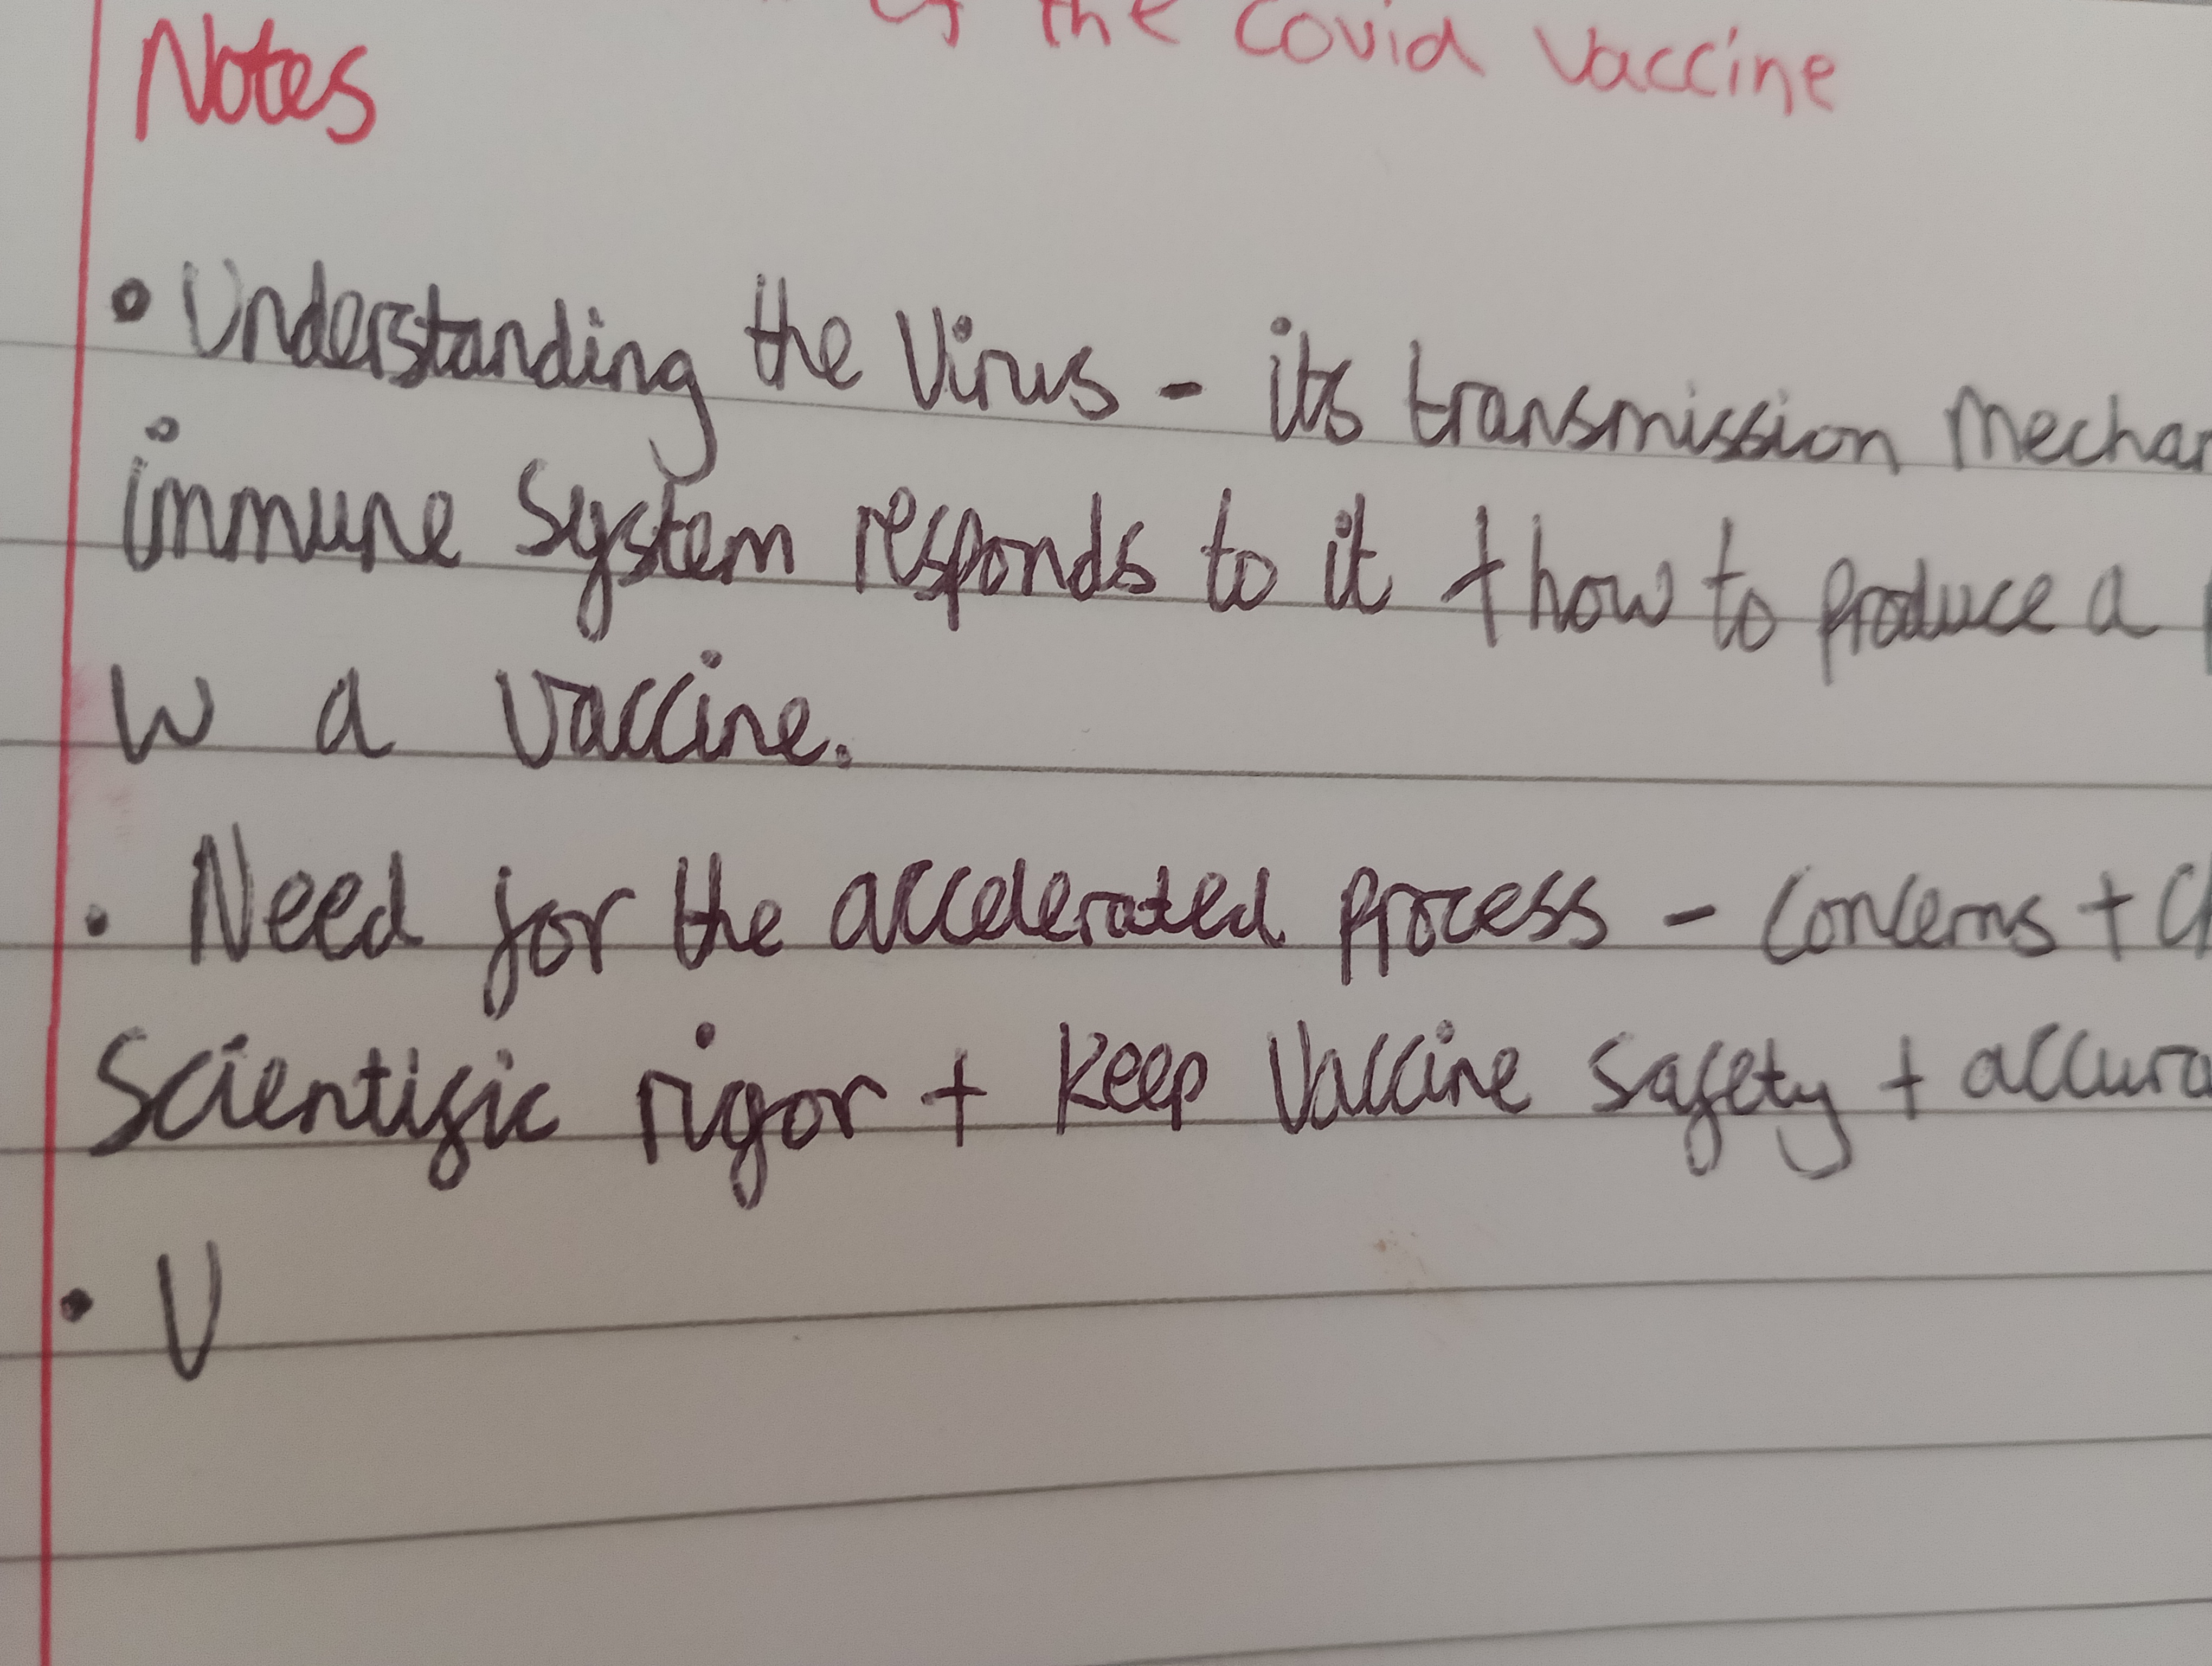 the Covid Vaccine
Notes
• Understanding the Virus - its transmission
immune System responds to it + how to produce a
w a vaccine.
• Need for the accelerated process - concerns +
Scientific rigor + keep vaccine safety +
• V